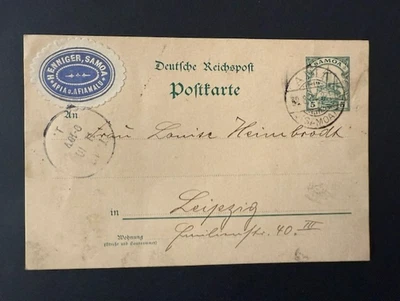 HENNIGER, SAMOA
APIA u. AFIAMALU
Deutsche Reichspost
Postkarte
SAMOA
5 5
APIA
SAMOA
An
Frau Louise Heimbrodt
in Leipzig
Wohnung
Emilienstr. 40. III